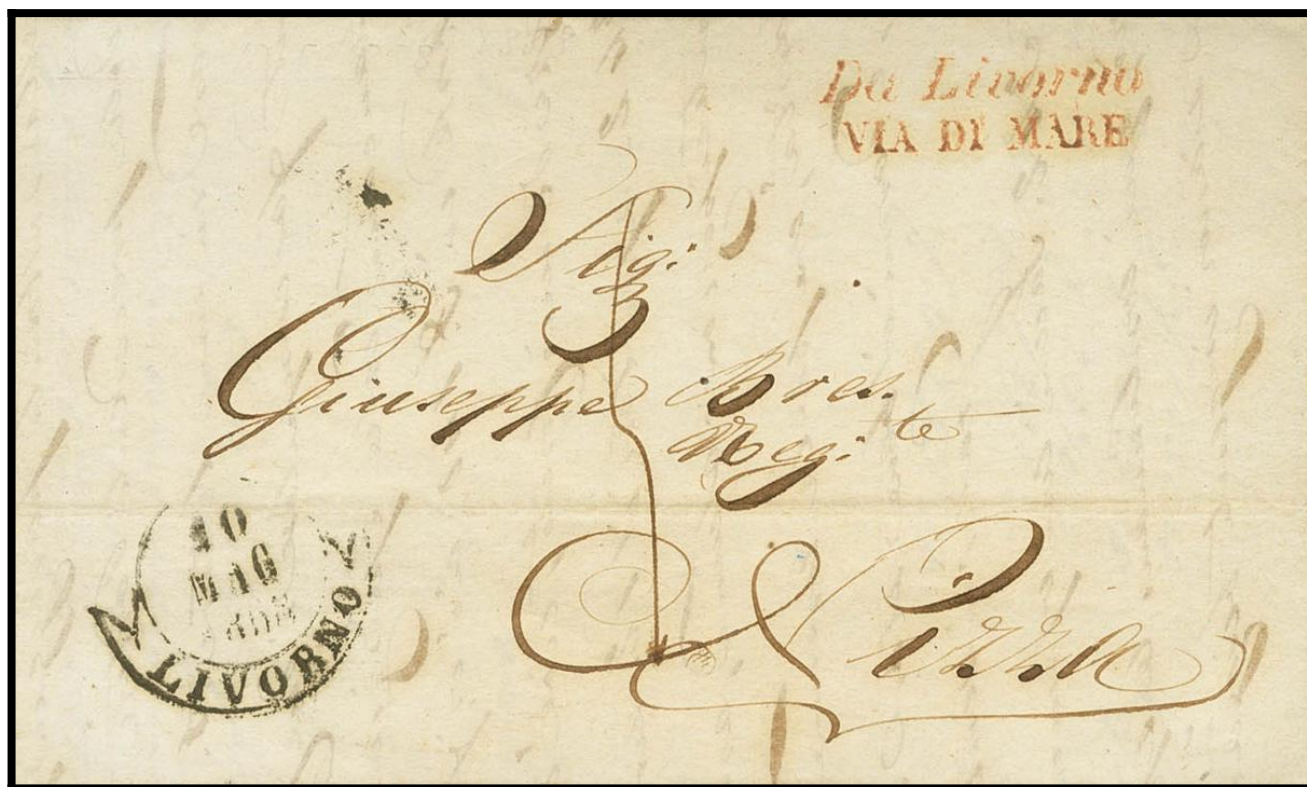 Da Livorno
VIA DI MARE
Sig:
Giuseppe Bres
Neg:te
Nizza
10
MAG
LIVORNO